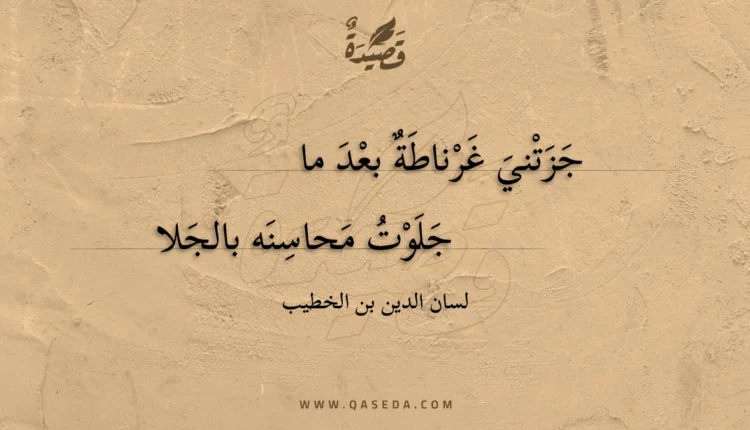 قَصِيْدَةٌ
جَزَتْنيَ غَرْناطَةٌ بعْدَ ما
جَلَوْتُ مَحاسِنَه بالجَلا
لسان الدين بن الخطيب
WWW.QASEDA.COM